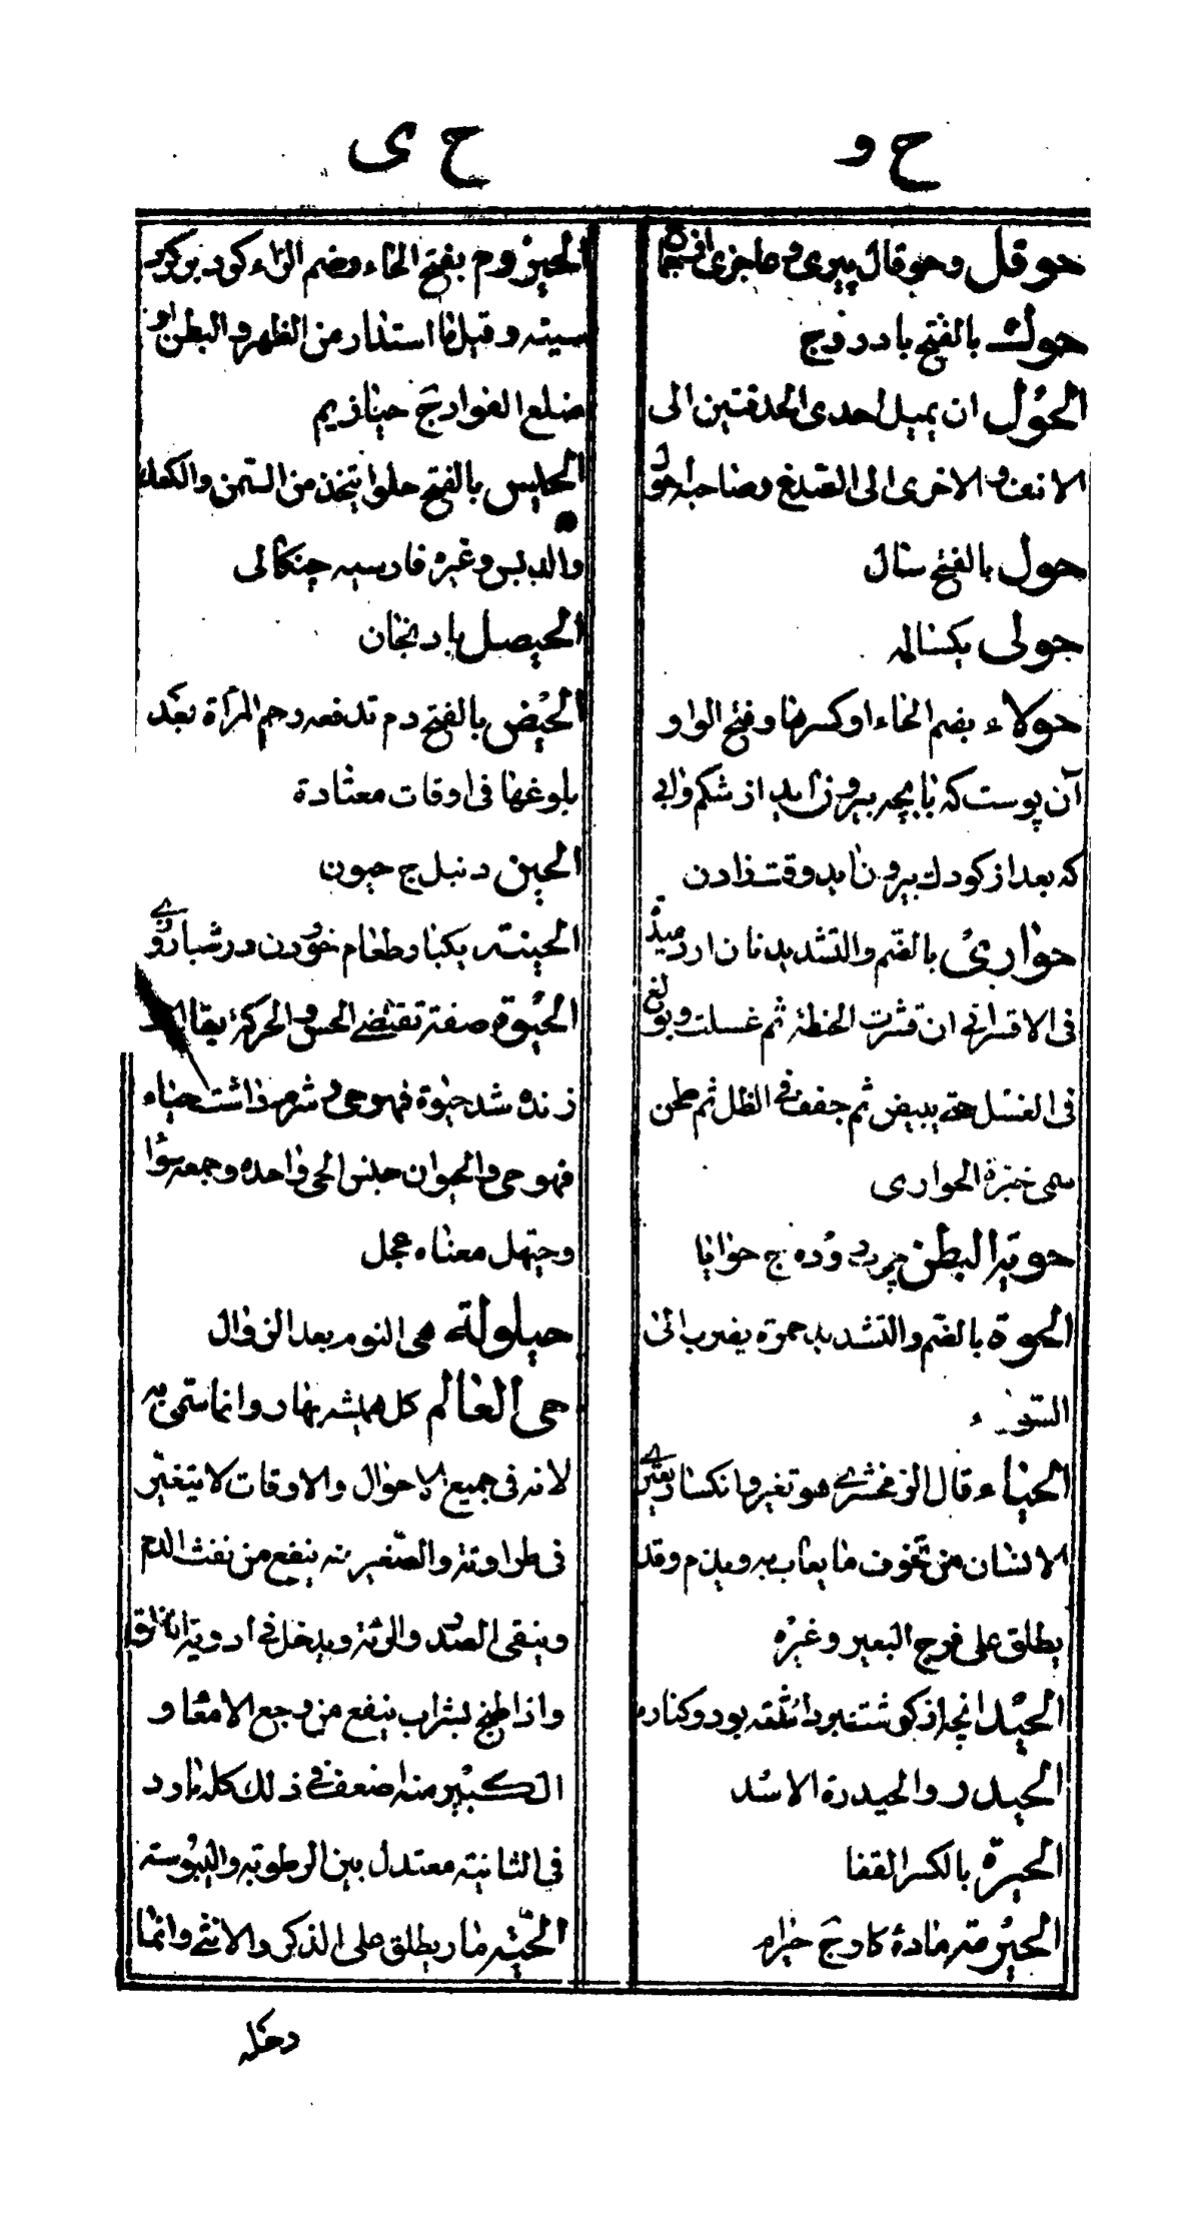 ح و
حوقل وحوقال پیری و عاجزی از جماع
حوك بالفتح بادروج
الحَوَل ان یمیل احدی الحدقتین الی
الانف و الاخری الی الصدغ وصاحبه احول
حول بالفتح سال
حولی یکساله
حولاء بضم الحاء او کسرها و فتح الواو
آن پوست که با بچه بیرون آید از شکم وآبی
که بعد از کودك بیرون آید وقت زادن
حواری بالضم والتشدید نان ارد میده
فی الاقسرائی ان قشرت الحنطة ثم غسلت و بولغ
فی الغسل حتی یبیض ثم جفف فی الظل ثم طحن
سمی خبزه الحواری
حویة البطن چرب روده ج حوایا
الحوة بالضم والتشدید حمرة یضرب الی
السواد
الحیاء قال الزمخشری هو تغیر وانکسار یعتری
الانسان من تخوف ما یعاب به ویذم وقد
یطلق علی فرج البعیر وغیره
الحید انچه از کوه شتفبر دا شقه بود وکناره
الحیدر والحیدرة الاسد
الحیرة بالکسر القفا
الحیرمة مادۀ کاو ج حیرم
ح ی
الحیزوم بفتح الحاء وضم الزاء کود بر کرد
سینه وقیل ما استدار من الظهر والبطن او
ضلع الفواد ج حیازیم
الحیس بالفتح حلوا یتخذ من السمن والکعك
والدبس وغیره فارسیه چنکالی
الحیصل بادنجان
الحیض بالفتح دم تدفعه رحم المرأة بعد
بلوغها فی اوقات معتادة
الحین دنبل ج حیون
الحینة یکبار طعام خوردن در شبازوی
الحیٰوة صفة تقتضی الحس والحرکة یقال
زنده شد حیٰوة فهو حی و شرم داشت حیاء
فهو حی والحیوان جنس الحی واحده وجمعه سواء
وحیهل معناه عجل
حیلولة هی النوم بعد الزوال
حی العالم کل همیشه بهار وانما سمی به
لانه فی جمیع الاحوال والاوقات لا یتغیر
فی طراوته والصغیر منه ینفع من نفث الدم
وینقی الصدر والرئة ویدخل فی ادویة
واذا طبخ بشراب ینفع من وجع الامعاء و
الکبیر منه اضعف فی ذلك کله بارد
فی الثانیة معتدل بین الرطوبة والیبوسة
الحیّة مار یطلق علی الذکر والانثی وانما
دخله